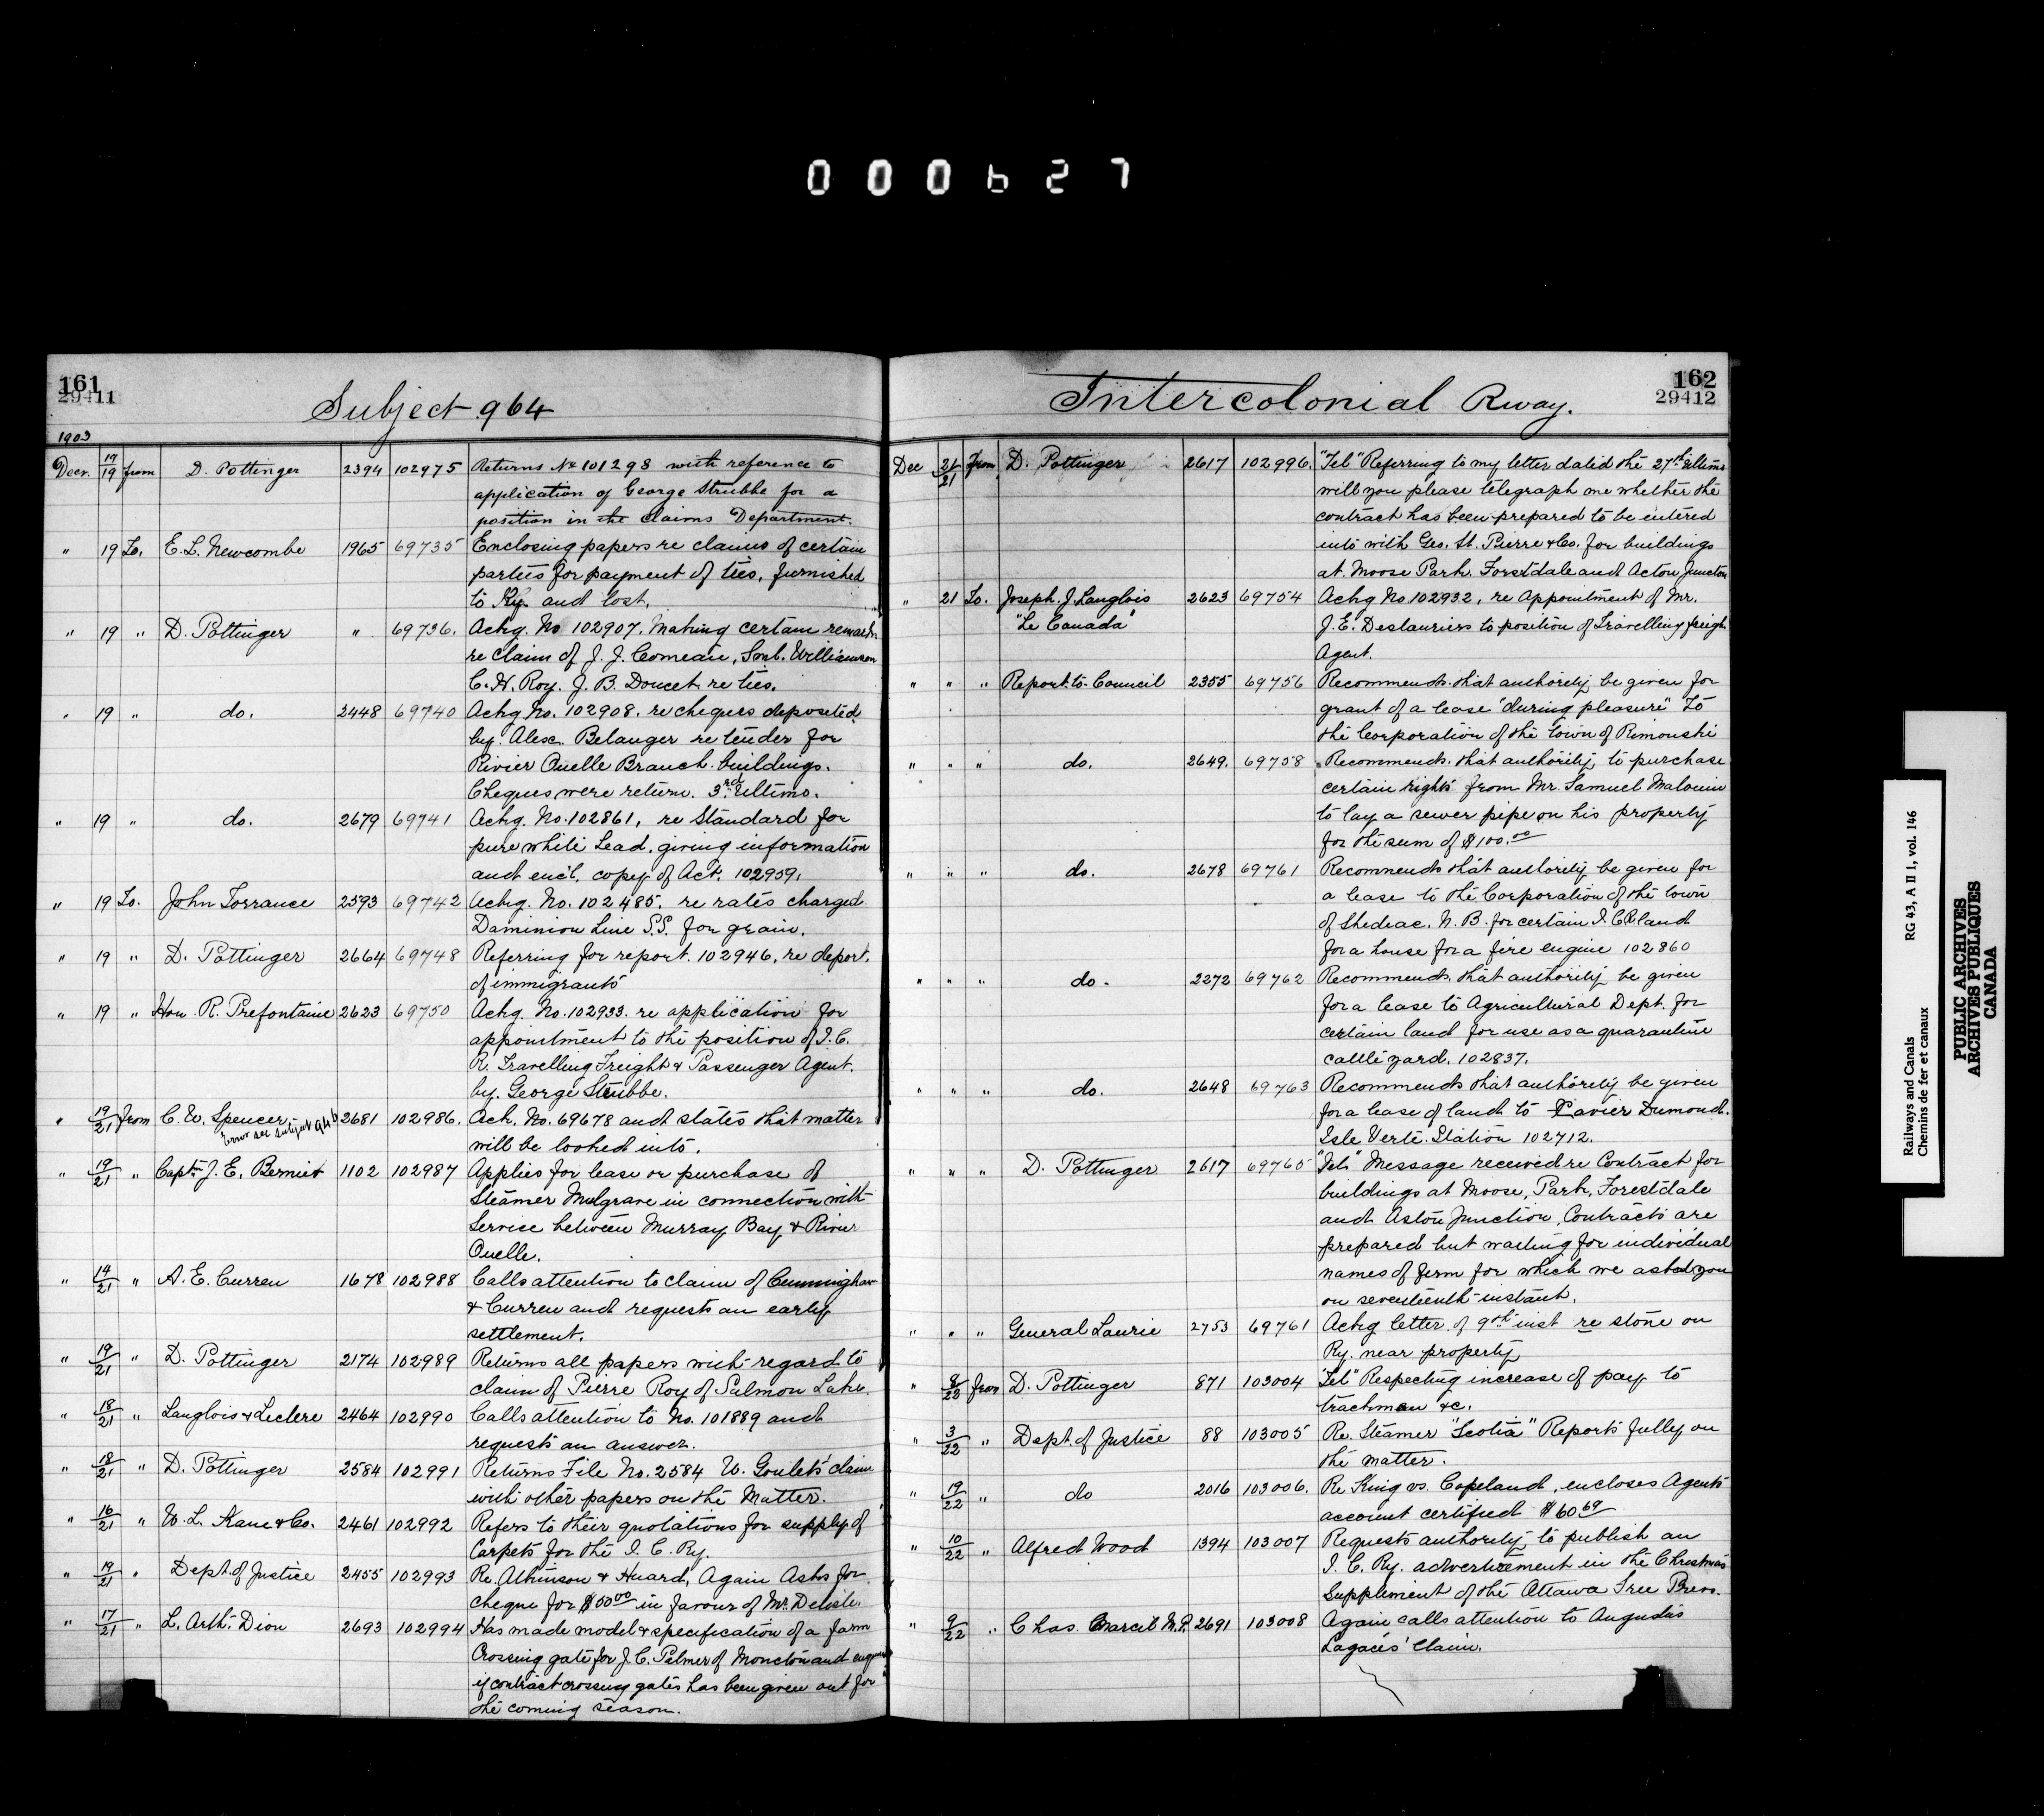 000627
161
29411
Subject 964
1903
Decr. 17/19 from D. Pottinger 2394 102975 Returns No 101298 with reference to
application of George Strubbe for a
position in the Claims Department.
" 19 To. E. L. Newcombe 1965 69735 Enclosing papers re claims of certain
parties for payment of ties, furnished
to Ry. and lost.
" 19 " D. Pottinger " 69736. Ackg. No 102907. Making certain remarks
re claim of J. J. Comeau, Saml. Williamson
C. H. Roy. J. B. Doucet. re ties.
" 19 " do. 2448 69740 Ackg No. 102908. re cheques deposited
by. Alex. Belanger re tender for
Rivier Ouelle Branch buildings.
Cheques were return. 3rd Ultimo.
" 19 " do. 2679 69741 Ackg. No. 102861, re Standard for
pure white Lead, giving information
and encl. copy of Act. 102959.
" 19 To. John Torrance 2593 69742 Ackg. No. 102485. re rates charged
Daminion Line S.S. for grain.
" 19 " D. Pottinger 2664 69748 Referring for report. 102946. re deport.
of immigrants
" 19 " Hon. R. Prefontaine 2623 69750 Ackg. No. 102933. re application for
appointment to the position of I. C.
R. Travelling Freight & Passenger Agent.
by. George Strubbe.
" 19/21 from C. W. Spencer 2681 102986. Ack. No. 69678 and states that matter
Error see subject 946
will be looked into.
" 19/21 " Captn J. E. Bernier 1102 102987 Applies for lease or purchase of
Steamer Mulgrave in connection with
Service between Murray Bay & River
Ouelle.
" 14/21 " A. E. Curren 1678 102988 Calls attention to claim of Cunningham
& Curren and requests an early
settlement.
" 19/21 " D. Pottinger 2174 102989 Returns all papers with regard to
claim of Pierre Roy of Salmon Lake.
" 18/21 " Langlois & Leclere 2464 102990 Calls attention to No. 101889 and
requests an answer.
" 18/21 " D. Pottinger 2584 102991 Returns File No. 2584 W. Goulet's claim
with other papers on the Matter.
" 16/21 " W. L. Kane & Co. 2461 102992 Refers to their quotations for supply of
Carpets for the I. C. Ry.
" 19/21 " Dept. of Justice 2455 102993 Re. Atkinson & Huard, Again Asks for
cheque for $50.00 in favour of Mr. Delisle.
" 17/21 " L. Arth. Dion 2693 102994 Has made model & specification of a farm
Crossing gate for J. C. Palmer of Moncton and enquires
if contract crossing gates has been given out for
the coming season.
162
29412
Intercolonial Rway.
Dec 21/21 From D. Pottinger 2617 102996. "Tel" Referring to my letter dated the 27th Ultimo
will you please telegraph me whether the
contract has been prepared to be entered
into with Geo. St. Pierre & Co. for buildings
at Moose Park. Forestdale and Acton Junction
" 21 To. Joseph. J. Langlois 2623 69754 Ackg No. 102932, re Appointment of Mr.
"Le Canada" J. E. Deslauriers to position of Travelling freight
Agent.
" " " Report to Council 2355 69756 Recommends that authority be given for
grant of a lease "during pleasure" To
the Corporation of the town of Rimouski
" " " do. 2649. 69758 Recommends. that authority to purchase
certain rights from Mr. Samuel Malouin
to lay a sewer pipe on his property
for the sum of $100.00
" " " do. 2678 69761 Recommends that authority be given for
a lease to the Corporation of the town
of Shediac. N. B. for certain I. C. R. land
for a house for a fire engine 102860
" " " do. 2272 69762 Recommends. that authority be given
for a lease to Agricultural Dept. for
certain land for use as a quarantine
cattle yard. 102837.
" " " do. 2648 69763 Recommends that authority be given
for a lease of land to Xavier Dumond.
Isle Verte Station 102712.
" " " D. Pottinger 2617 69765 "Tel" Message received re Contract for
buildings at Moose, Park, Forestdale
and Aston Junction, Contracts are
prepared but waiting for individual
names of firm for which we asked you
on seventeenth instant.
" " " General Laurie 2753 69761 Ackg letter of 9th inst re stone on
Ry. near property
" 8/22 from D. Pottinger 871 103004 "Tel" Respecting increase of pay to
trackmen &c.
" 3/22 " Dept. of Justice 88 103005 Re. Steamer "Scotia" Reports fully on
the matter.
" 19/22 " do 2016 103006. Re King vs. Copeland, encloses Agents
account certified $60.69
" 10/22 " Alfred Wood 1394 103007 Requests authority to publish an
I. C. Ry. advertizement in the Christmas
Supplement of the Ottawa Free Press.
" 9/22 " Chas. Marcil M.P. 2691 103008 Again calls attention to Augustus
Lagacés' Claim.
Railways and Canals RG 43, A II 1, vol. 146
Chemins de fer et canaux
PUBLIC ARCHIVES
ARCHIVES PUBLIQUES
CANADA